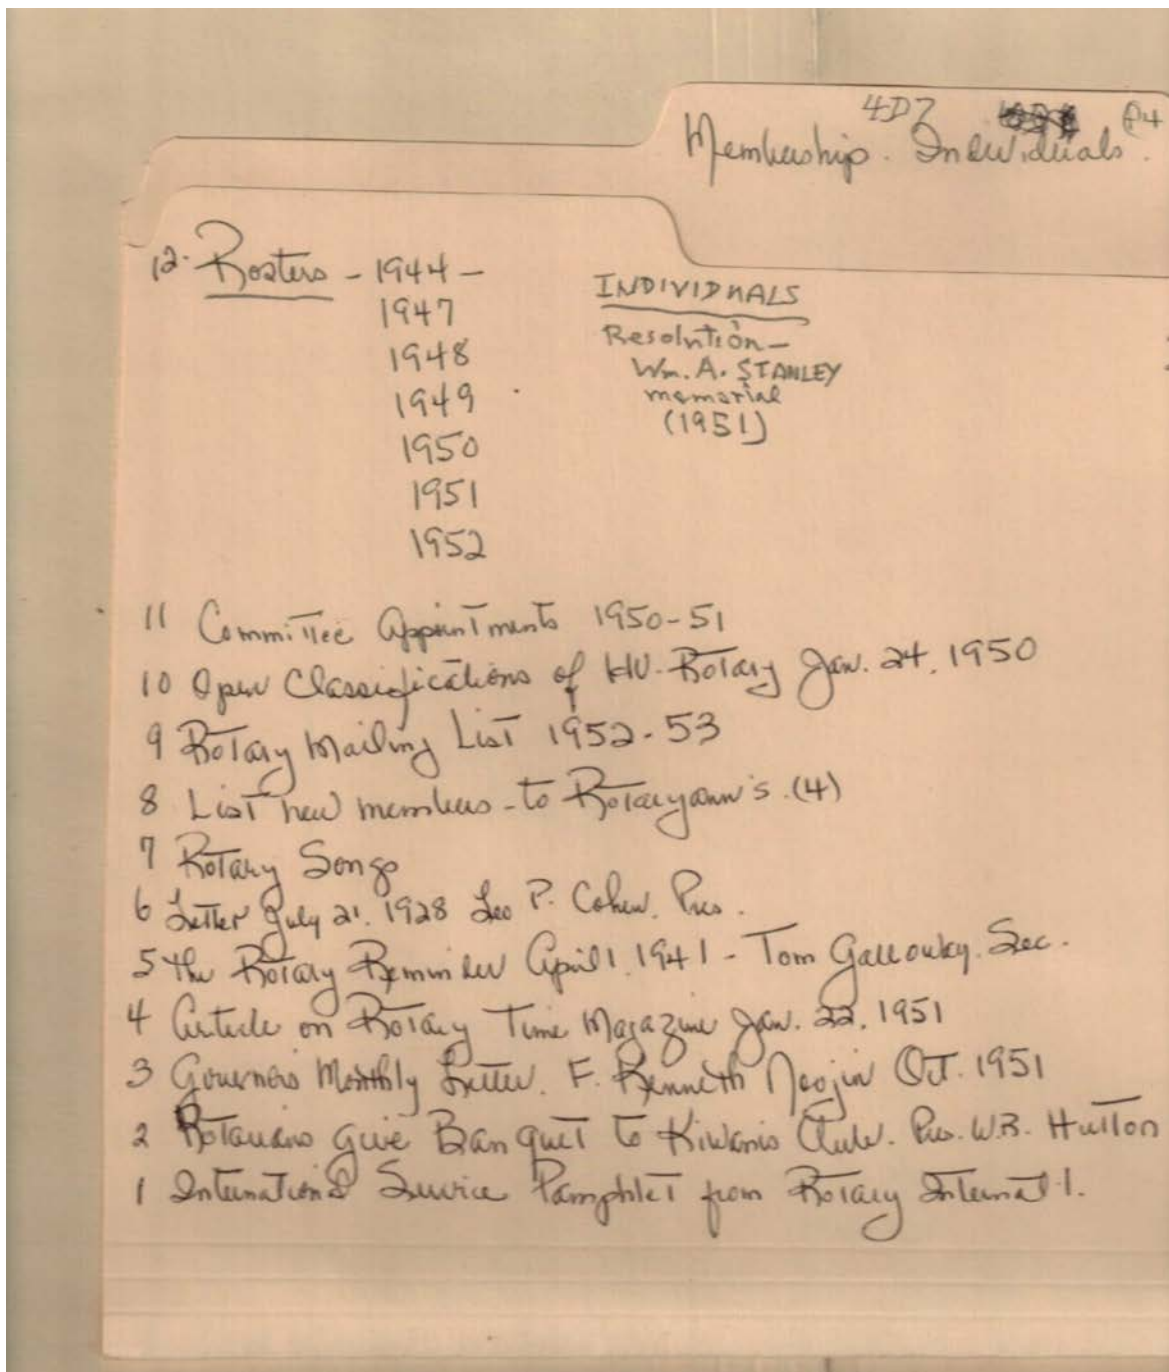 4D7 P4
Membership. Individuals.
12. Rosters - 1944 -
1947
1948
1949
1950
1951
1952
INDIVIDUALS
Resolution -
Wm. A. STANLEY
memorial
(1951)
11 Committee Appointments 1950-51
10 Open Classifications of HV. Rotary Jan. 24, 1950
9 Rotary Mailing List 1952-53
8 List new members - to Rotaryann's. (4)
7 Rotary Songs
6 Letter July 21, 1928 Leo P. Cohen. Pres.
5 The Rotary Reminder April 1, 1941 - Tom Galloway. Sec.
4 Article on Rotary Time Magazine Jan. 22, 1951
3 Governors Monthly Letter. F. Kenneth Neojin Oct. 1951
2 Rotarians give Banquet to Kiwanis Club. Pres. W.B. Hutton
1 International Service Pamphlet from Rotary Internat'l.